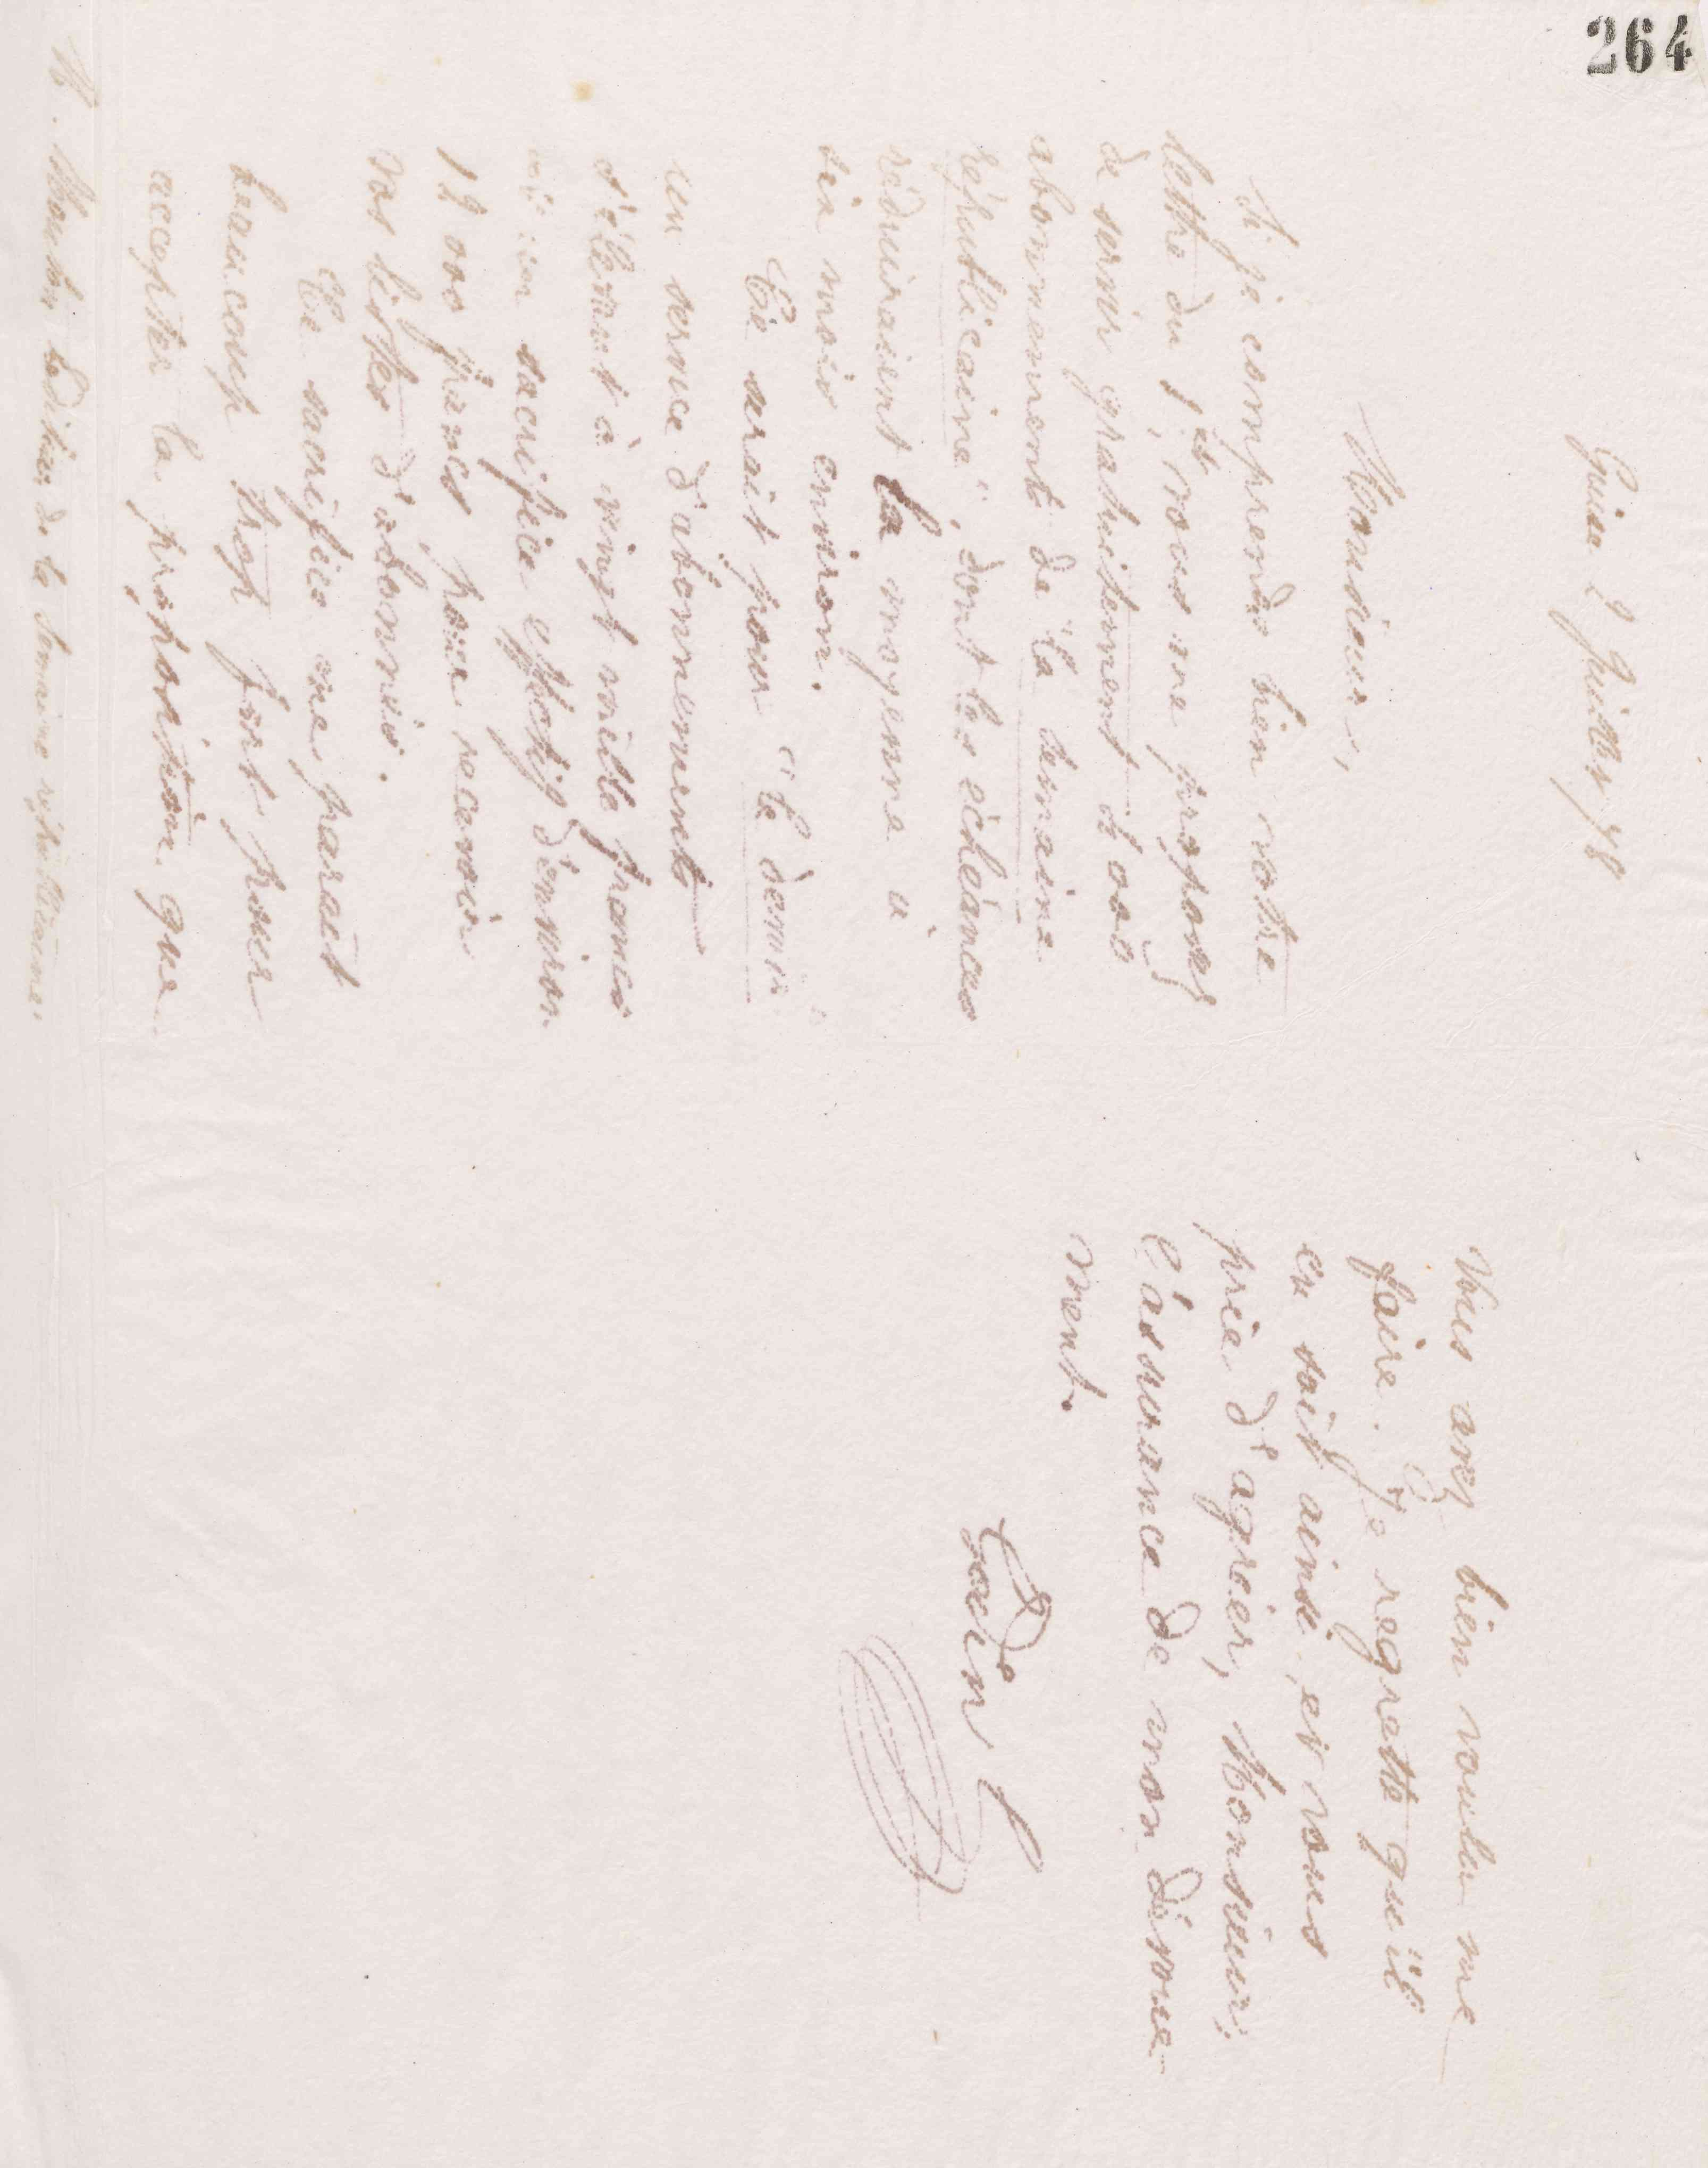 264
Guise 2 Juillet 78
Monsieur,
Si je comprends bien votre
lettre du 1er, vous me proposez
de servir gratuitement 2000
abonnements de "la semaine
républicaine", dont les échéances
réduiraient la moyenne à
six mois environ.
Ce serait pour "le devoir"
un service d'abonnements
s'élevant à vingt mille francs
sacrifice effectif d'environ
12000 francs pour recevoir
vos listes d'abonnés.
Ce sacrifice me parait
beaucoup trop fort pour
accepter la proposition que
M. éditeur de la Semaine républicaine.
vous avez bien voulu me
faire. Je regrette qu'il
en soit ainsi, et vous
prie d'agréer, Monsieur,
l'assurance de mon dévoue-
ment.
Godin